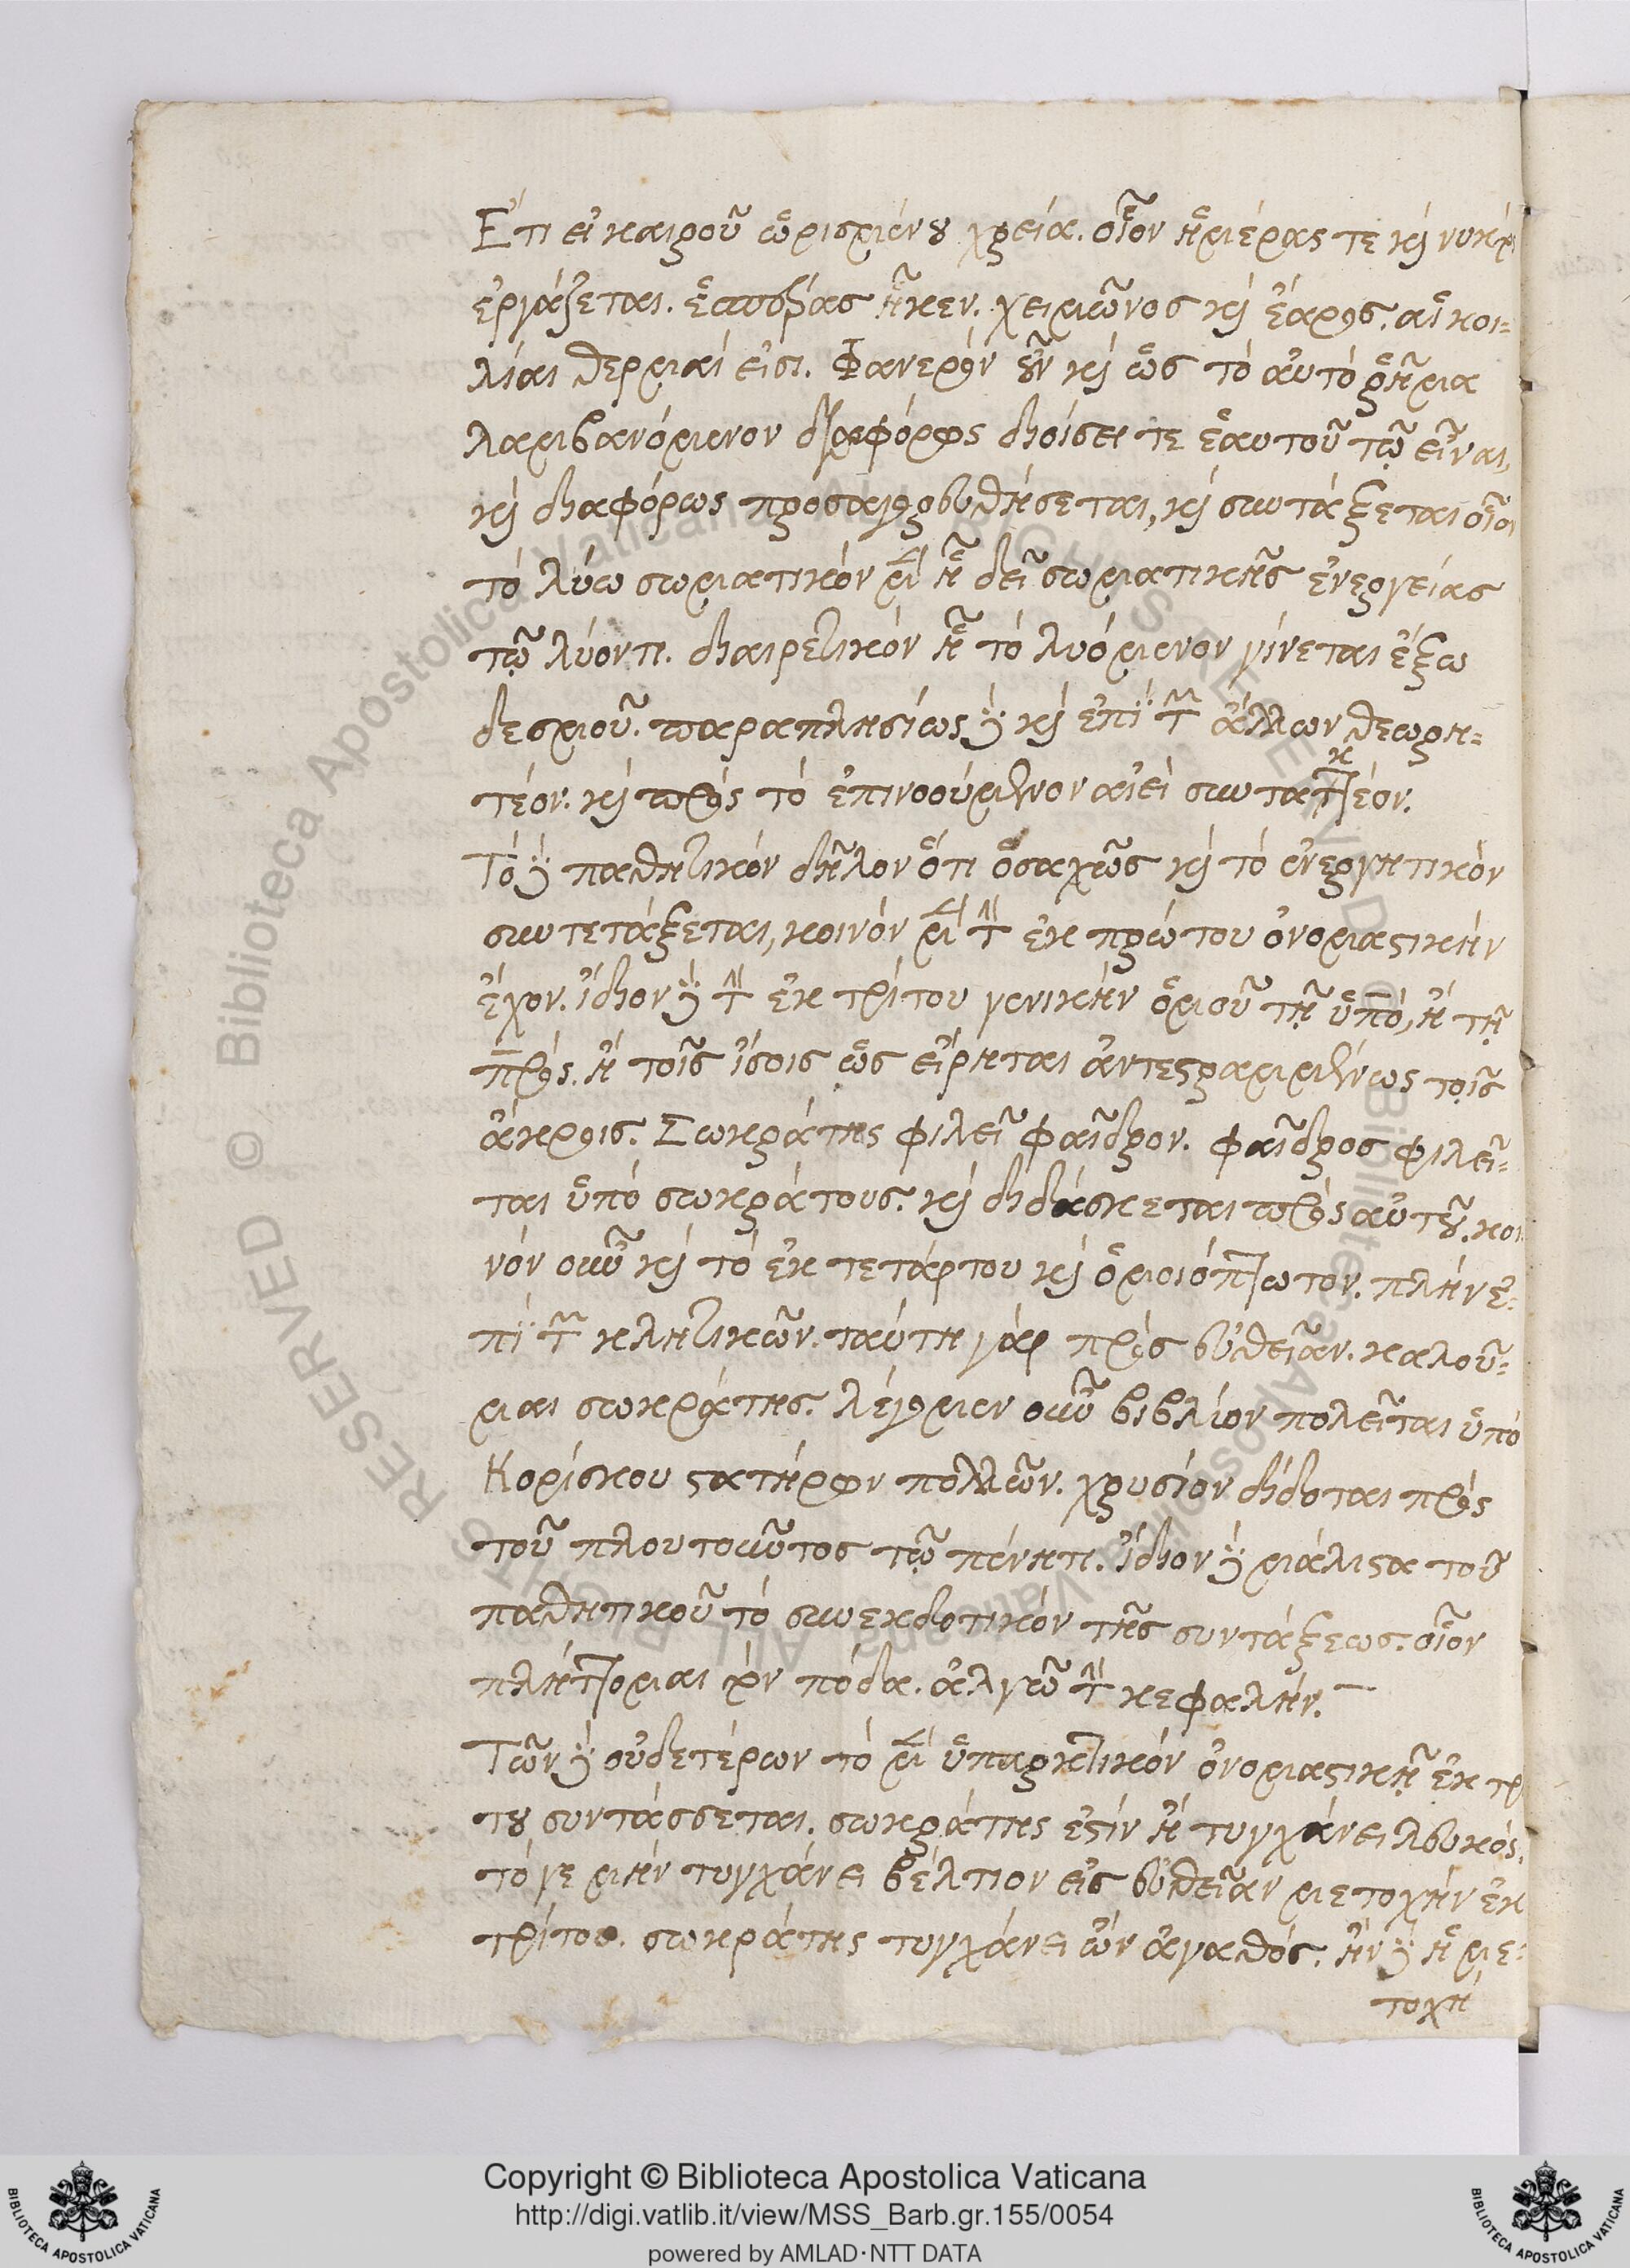 Ἔτι εἰ καιροῦ ὡρισμένου χρεία. οἷον ἡμέρας τε καὶ νυκτὸς
ἐργάζεται. ἑσπέρας ἧκεν. χειμῶνος καὶ ἔαρος. αἱ κοι=
λίαι θερμαί εἰσι. Φανερόν οὖν καὶ ὡς τὸ αὐτὸ ῥῆμα
λαμβανόμενον διαφόρως διοίσει τε ἑαυτοῦ τῷ εἶναι,
καὶ διαφόρως προσαγορευθήσεται, καὶ συντάξεται οἷον
τὸ λύω σωματικόν μὲν ᾗ δεῖ σωματικῆς ἐνεργείας
τῷ λύοντι. διαιρετικόν ᾗ τὸ λυόμενον γίνεται ἔξω
δεσμοῦ. παραπλησίως δὲ καὶ ἐπὶ τῶν ἄλλων θεωρη=
τέον. καὶ πρὸς τὸ ἐπινοούμενον αἰεὶ συντακτέον.
Τὸ δὲ παθητικόν δῆλον ὅτι ὁσαχῶς καὶ τὸ ἐνεργητικόν
συντετάξεται, κοινόν μὲν τὴν ἐκ πρώτου ὀνομαστικήν
ἔχον. ἴδιον δὲ τὴν ἐκ τρίτου γενικήν ὁμοῦ τῇ ὑπό, ἢ τῇ
πρός. ἢ τοῖς ἴσοις ὡς εἴρηται ἀντεστραμμένως τοῖς
ἄκροις. Σωκράτης φιλεῖ φαῖδρον. φαῖδρος φιλεῖ=
ται ὑπό σωκράτους. καὶ διδάσκεται πρὸς αὐτοῦ. κοι
νόν οὖν καὶ τὸ ἐκ τετάρτου καὶ ὁμοιόπτωτον. πλήν ἐ=
πὶ τῶν κλητικῶν. ταύτῃ γάρ πρὸς εὐθεῖαν. καλοῦ=
μαι σωκράτης. λέγομεν οὖν βιβλίον πολεῖται ὑπό
Κορίσκου στατήρων πολλῶν. χρυσίον δίδοται πρὸς
τοῦ πλουτοῦντος τῷ πένητι. ἴδιον δὲ μάλιστα τοῦ
παθητικοῦ τὸ συνεκδοτικόν τῆς συντάξεως. οἷον
πλήττομαι τὸν πόδα. ἀλγῶ τὴν κεφαλήν.
Τῶν δὲ οὐδετέρων τὸ μὲν ὑπαρκτικόν ὀνομαστικῇ ἐκ τρί
του συντάσσεται. σωκράτης ἐστίν ἢ τυγχάνει λευκός.
τό γε μήν τυγχάνει βέλτιον εἰς εὐθεῖαν μετοχήν ἐκ
τρίτου. σωκράτης τυγχάνει ὤν ἀγαθός. ἦν δὲ ἡ με=
τοχή
Copyright © Biblioteca Apostolica Vaticana
http://digi.vatlib.it/view/MSS_Barb.gr.155/0054
powered by AMLAD·NTT DATA